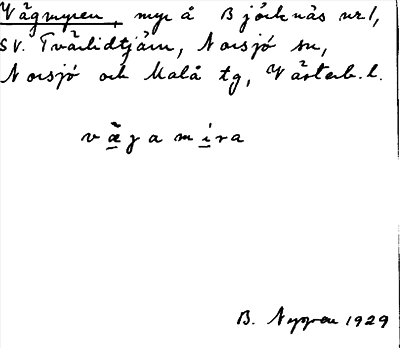 Vägmyren, myr å Bjöcknäs nr 1,
SV. Tvärlidtjärn, Norsjö sn,
Norsjö och Malå tg, Västerb. l.
vä̃gamira
B. Nyppen 1929